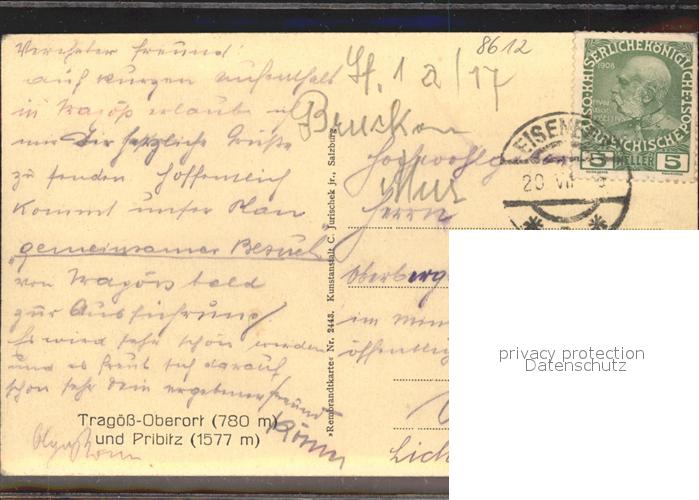 8612
Verehrter Freund!
auf kurzen Aufenthalt
in Tragöß erlaube ich
mir Dir herzliche Grüße
zu senden hoffentlich
kommt unser Plan
gemeinsamer Besuch
von Tragöss bald
zur Ausführung
Es wird sehr schön werden
und es freut sich darauf
schon sehr dein ergebener Freund
Tragöß-Oberort (780 m)
und Pribitz (1577 m)
»Rembrandtkarte« Nr. 2443. Kunstanstalt C. Jurischek jr., Salzburg
Bruck an
Mur
Hochwohlg
Herrn
Oberberg
im Min
öffentlig
EISENE
20 VI
1908
5 HELLER 5
privacy protection
Datenschutz